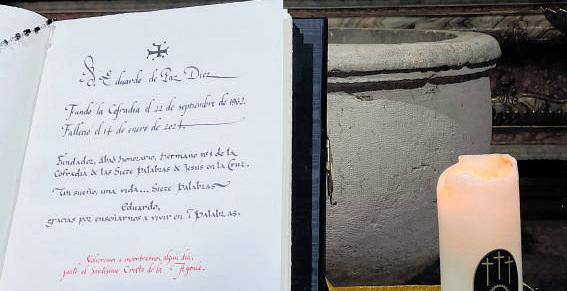 D. Eduardo de Paz Diez
Fundó la Cofradía el 22 de septiembre de 1962.
Falleció el 14 de enero de 2024.
Fundador, Abad honorario, hermano nº1 de la
Cofradía de las Siete Palabras de Jesús en la Cruz.
Un sueño, una vida... Siete Palabras
Eduardo,
gracias por enseñarnos a vivir en 7 Palabras.
Volveremos a encontrarnos, algún día,
junto al Santísimo Cristo de la Agonía.